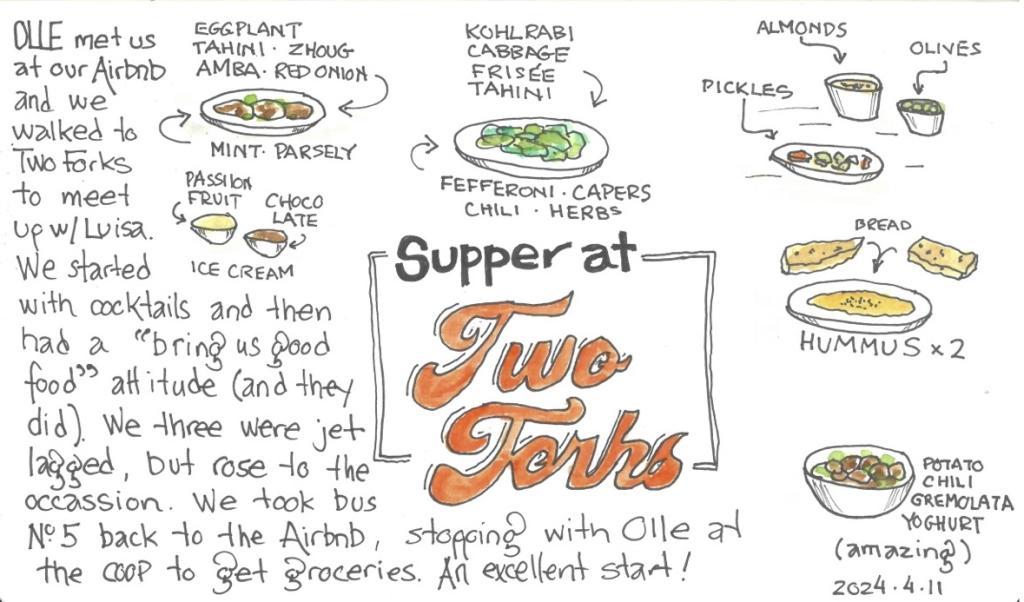 OLLE met us
at our Airbnb
and we
walked to
Two Forks
to meet
up w/ Luisa.
We started
with cocktails and then
had a "bring us good
food" attitude (and they
did). We three were jet
lagged, but rose to the
occassion. We took bus
Nº 5 back to the Airbnb, stopping with Olle at
the COOP to get groceries. An excellent start!
EGGPLANT
TAHINI · ZHOUG
AMBA · RED ONION
MINT · PARSELY
PASSION
FRUIT
CHOCO
LATE
ICE CREAM
KOHLRABI
CABBAGE
FRISÉE
TAHINI
FEFFERONI · CAPERS
CHILI · HERBS
Supper at
Two
Forks
ALMONDS
OLIVES
PICKLES
BREAD
HUMMUS x 2
POTATO
CHILI
GREMOLATA
YOGHURT
(amazing)
2024.4.11